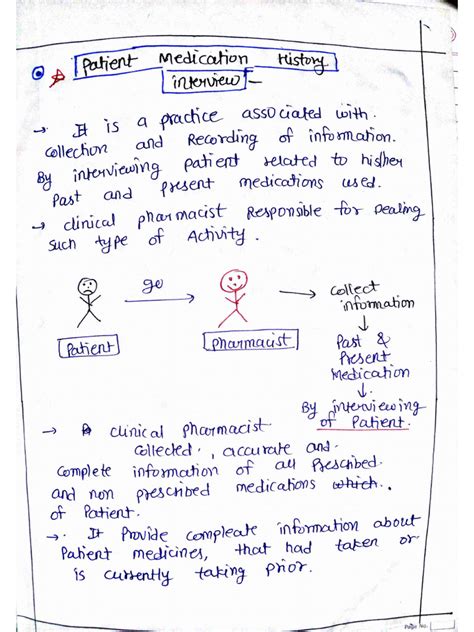 Patient Medication History
interview -
→ It is a practice associated with.
collection and Recording of information.
By interviewing patient related to his/her
Past and present medications used.
→ clinical pharmacist Responsible for Dealing
such type of Activity.
go
→ collect
information
↓
Patient
Pharmacist
Past &
Present
Medication
↓
By interviewing
of Patient.
→ clinical pharmacist
collected., accurate and.
complete information of all Prescribed.
and non prescribed medications which.
of Patient.
→. It Provide compleate information about
Patient medicines, that had taken or
is currently taking prior.
Page No.